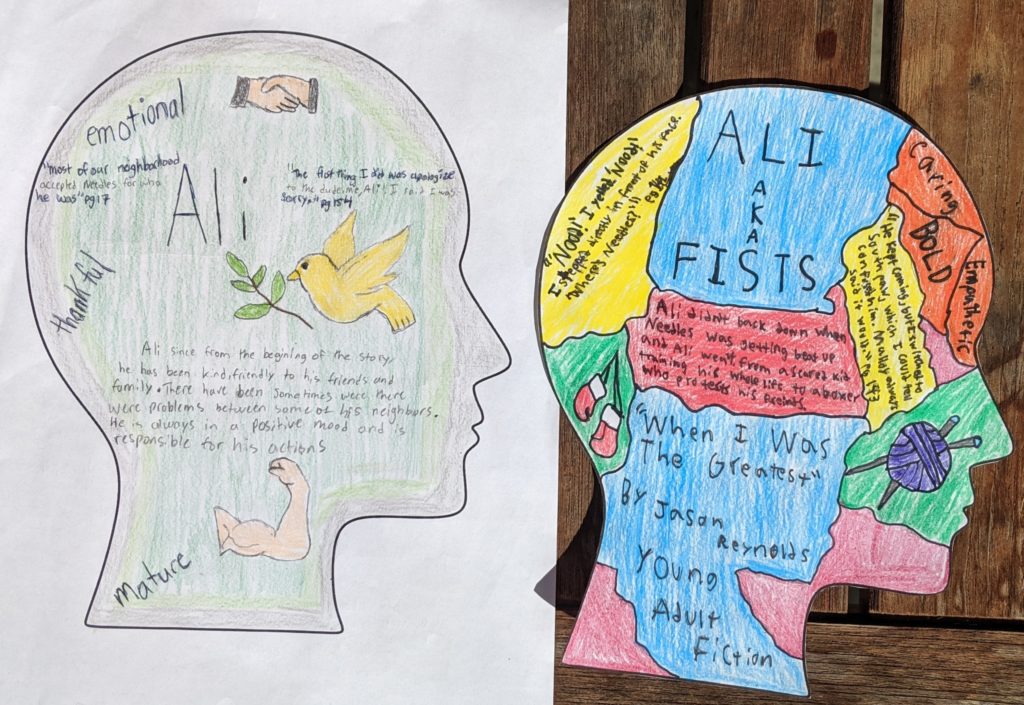 emotional
"most of our neighborhood
accepted Needles for who
he was" pg 17
Ali
"The fist thing I did was apologize
to the dude, me, Ali! I said I was
sorry," pg 154
thankful
Ali since from the begining of the story,
he has been kind, friendly to his friends and
family. There have been sometimes were there
were problems between some of his neighbors.
He is always in a positive mood and is
responsible for his actions
mature
ALI
AKA
FISTS
"'Nodd!' I yelled 'Nodd!'
I stepped directly in front of his face.
'Where's Needles?'"
Caring
BOLD
Empathetic
"He kept coming, but I switched to
South paw, which I could tell
confused him. Malloy always
said it would" pg. 143
Ali didn't back down when
Needles was getting beat up
and Ali went from a scared kid
training his whole life to a boxer
who protects his freints
"When I Was
The Greatest"
By Jason
Reynolds
Young
Adult
Fiction